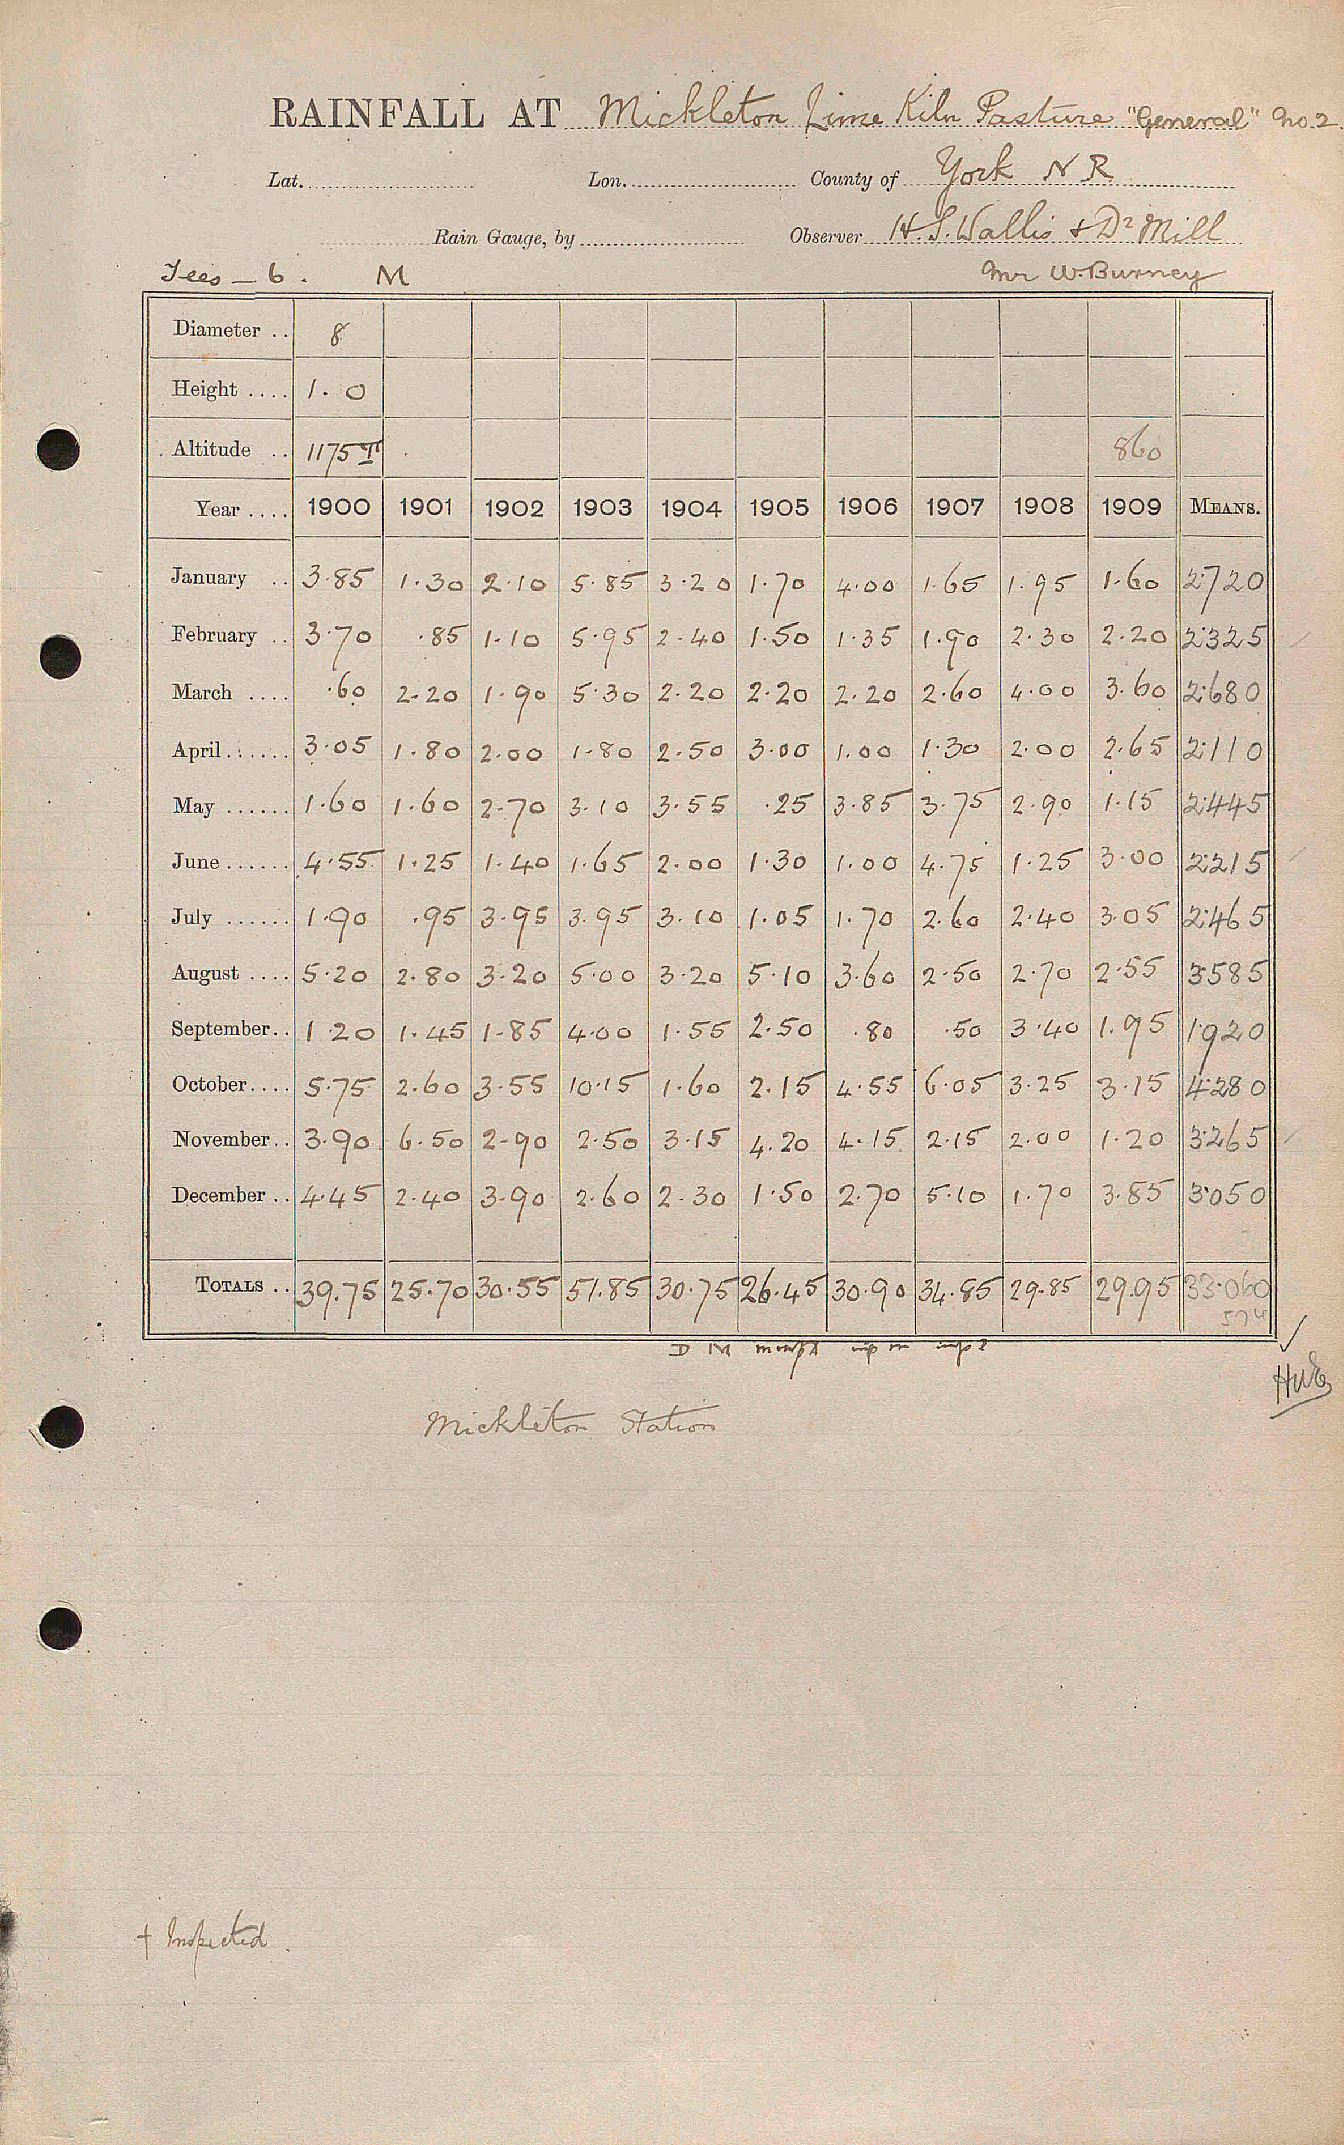 RAINFALL AT Mickleton Lime Kiln Pasture "General" No. 2
Lat. Lon. County of York N R
Rain Gauge, by Observer H. S. Wallis & Dr Mill
Tees — 6. M Mr W. Burney
Diameter .. 8
Height .... 1. 0
Altitude .. 1175 T 860
Year .... 1900 1901 1902 1903 1904 1905 1906 1907 1908 1909 MEANS.
January .. 3.85 1.30 2.10 5.85 3.20 1.70 4.00 1.65 1.95 1.60 2.720
February .. 3.70 .85 1.10 5.95 2.40 1.50 1.35 1.90 2.30 2.20 2.325
March .... .60 2.20 1.90 5.30 2.20 2.20 2.20 2.60 4.00 3.60 2.680
April...... 3.05 1.80 2.00 1.80 2.50 3.00 1.00 1.30 2.00 2.65 2.110
May ...... 1.60 1.60 2.70 3.10 3.55 .25 3.85 3.75 2.90 1.15 2.445
June...... 4.55 1.25 1.40 1.65 2.00 1.30 1.00 4.75 1.25 3.00 2.215
July ...... 1.90 .95 3.95 3.95 3.10 1.05 1.70 2.60 2.40 3.05 2.465
August .... 5.20 2.80 3.20 5.00 3.20 5.10 3.60 2.50 2.70 2.55 3.585
September.. 1.20 1.45 1.85 4.00 1.55 2.50 .80 .50 3.40 1.95 1.920
October.... 5.75 2.60 3.55 10.15 1.60 2.15 4.55 6.05 3.25 3.15 4.280
November.. 3.90 6.50 2.90 2.50 3.15 4.20 4.15 2.15 2.00 1.20 3.265
December .. 4.45 2.40 3.90 2.60 2.30 1.50 2.70 5.10 1.70 3.85 3.050
TOTALS .. 39.75 25.70 30.55 51.85 30.75 26.45 30.90 34.85 29.85 29.95 33.060
D M
Mickleton Station
† Inspected.